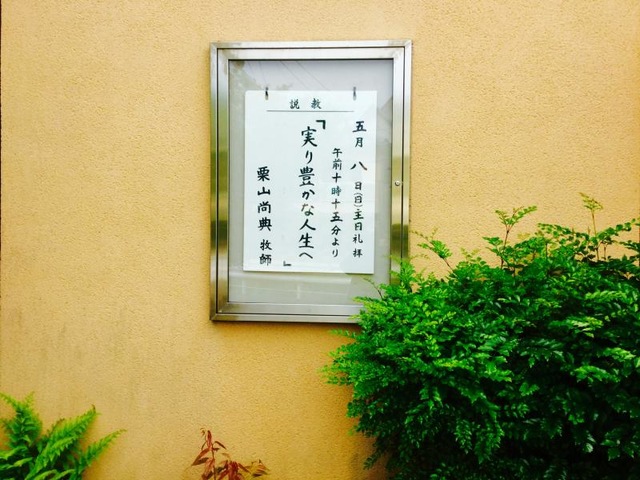 説教
五月八日(日)主日礼拝
午前十時十五分より
『実り豊かな人生へ』
栗山尚典 牧師